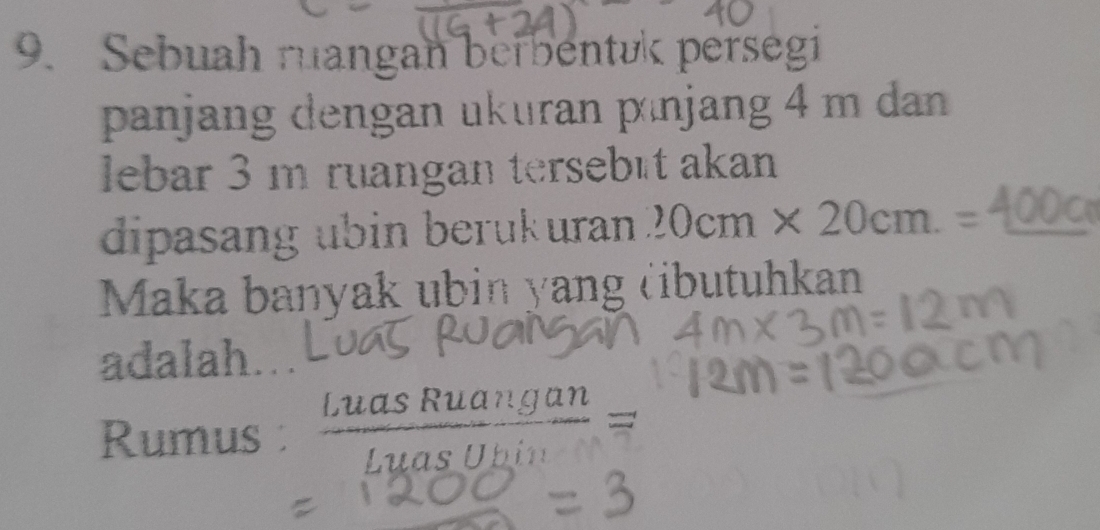 (16+24) 40
9. Sebuah ruangan berbentuk persegi
panjang dengan ukuran panjang 4 m dan
lebar 3 m ruangan tersebut akan
dipasang ubin berukuran 20cm × 20cm. = 400c
Maka banyak ubin yang dibutuhkan
adalah... Luas Ruangan 4m × 3m = 12m
12m = 1200cm
Rumus : Luas Ruangan =
Luas Ubin
= 1200 = 3